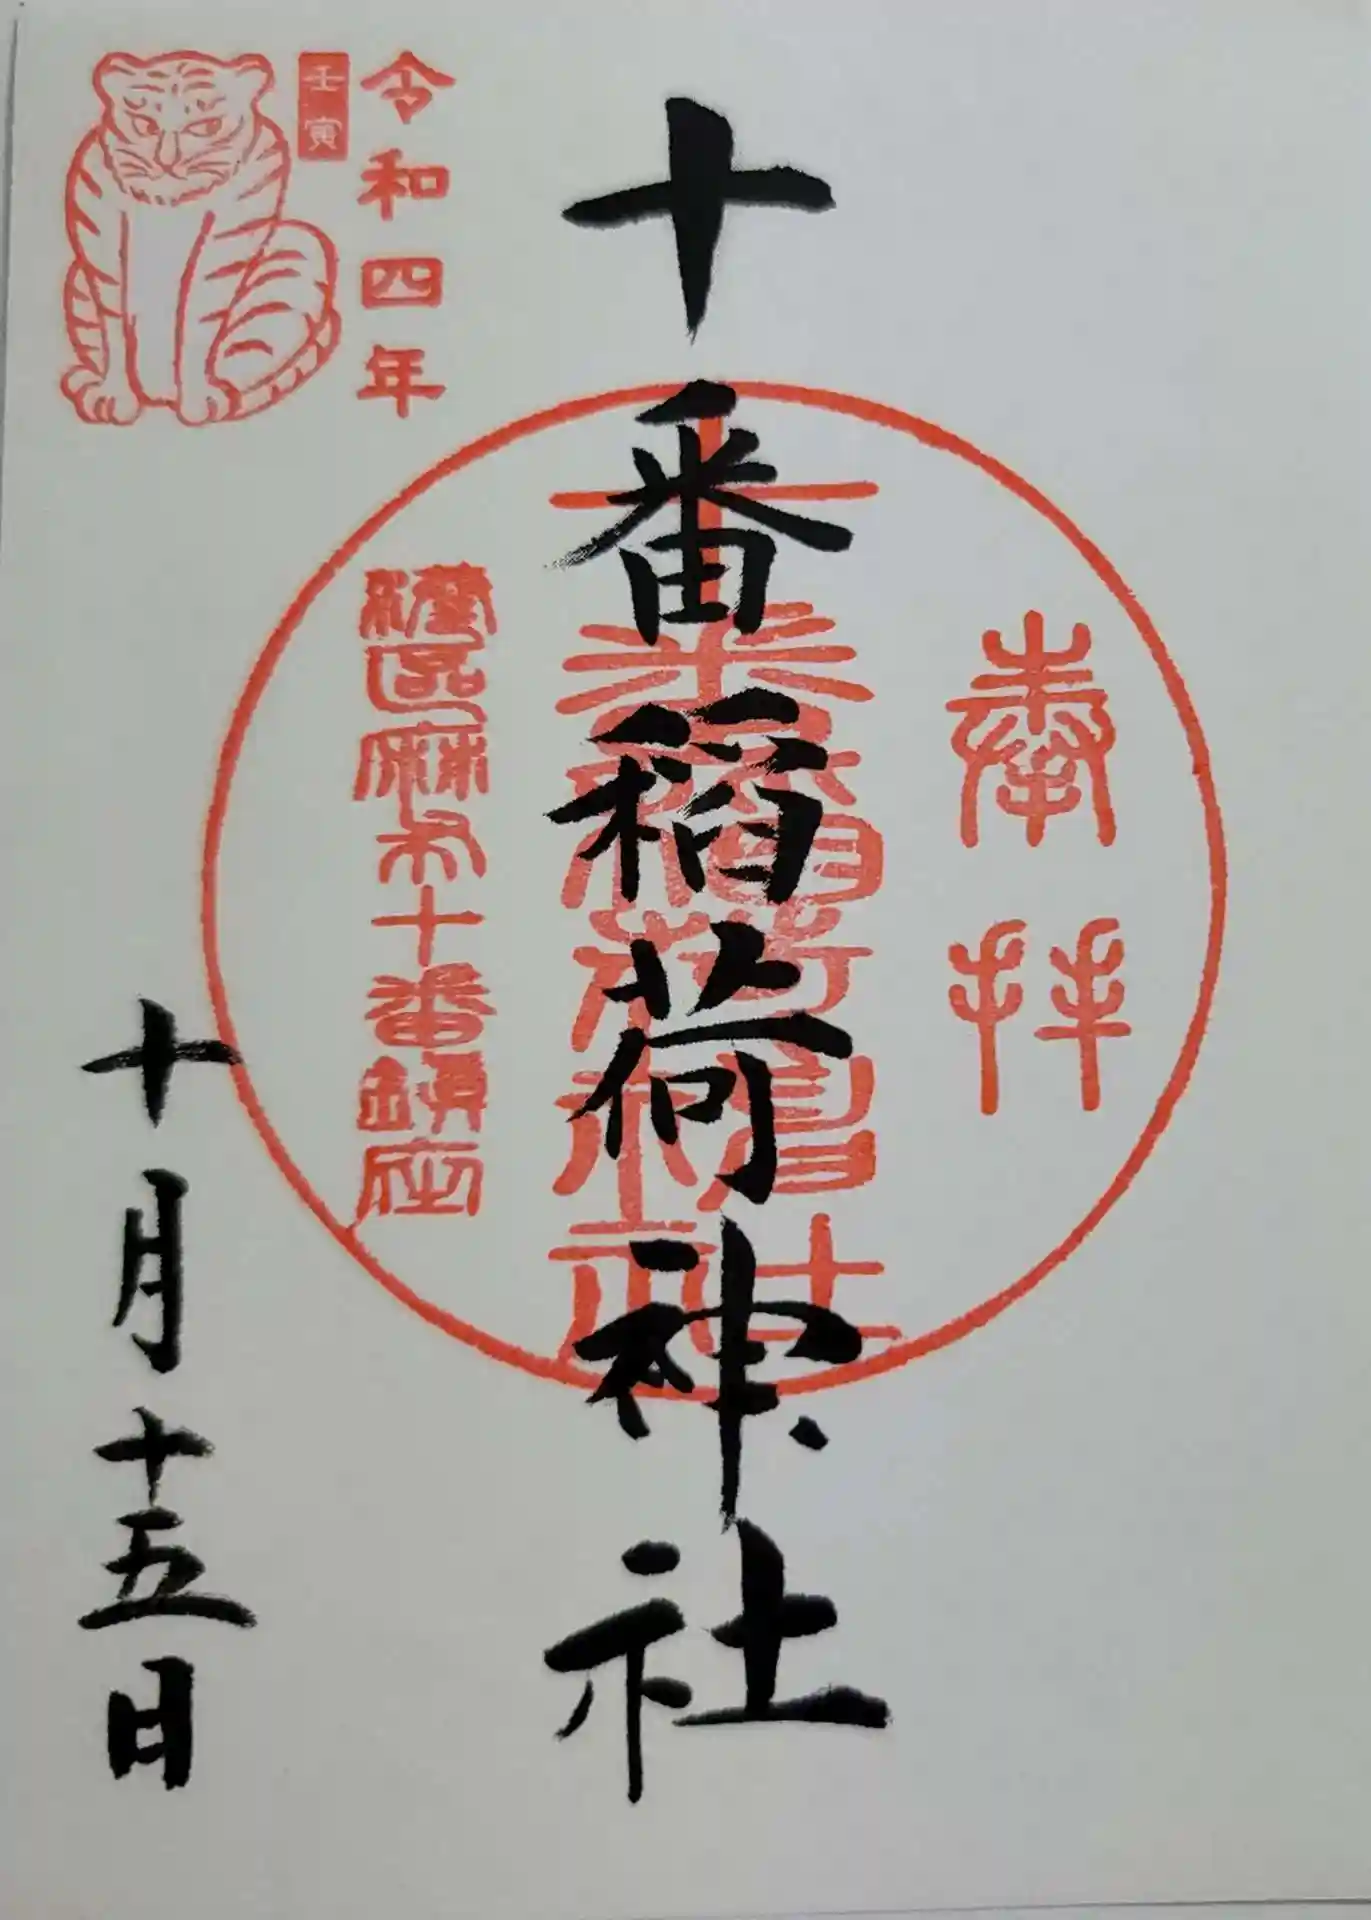 奉拝
十番稲荷神社
十番稲荷神社
港区麻布十番鎮座
令和四年
壬寅
十月十五日